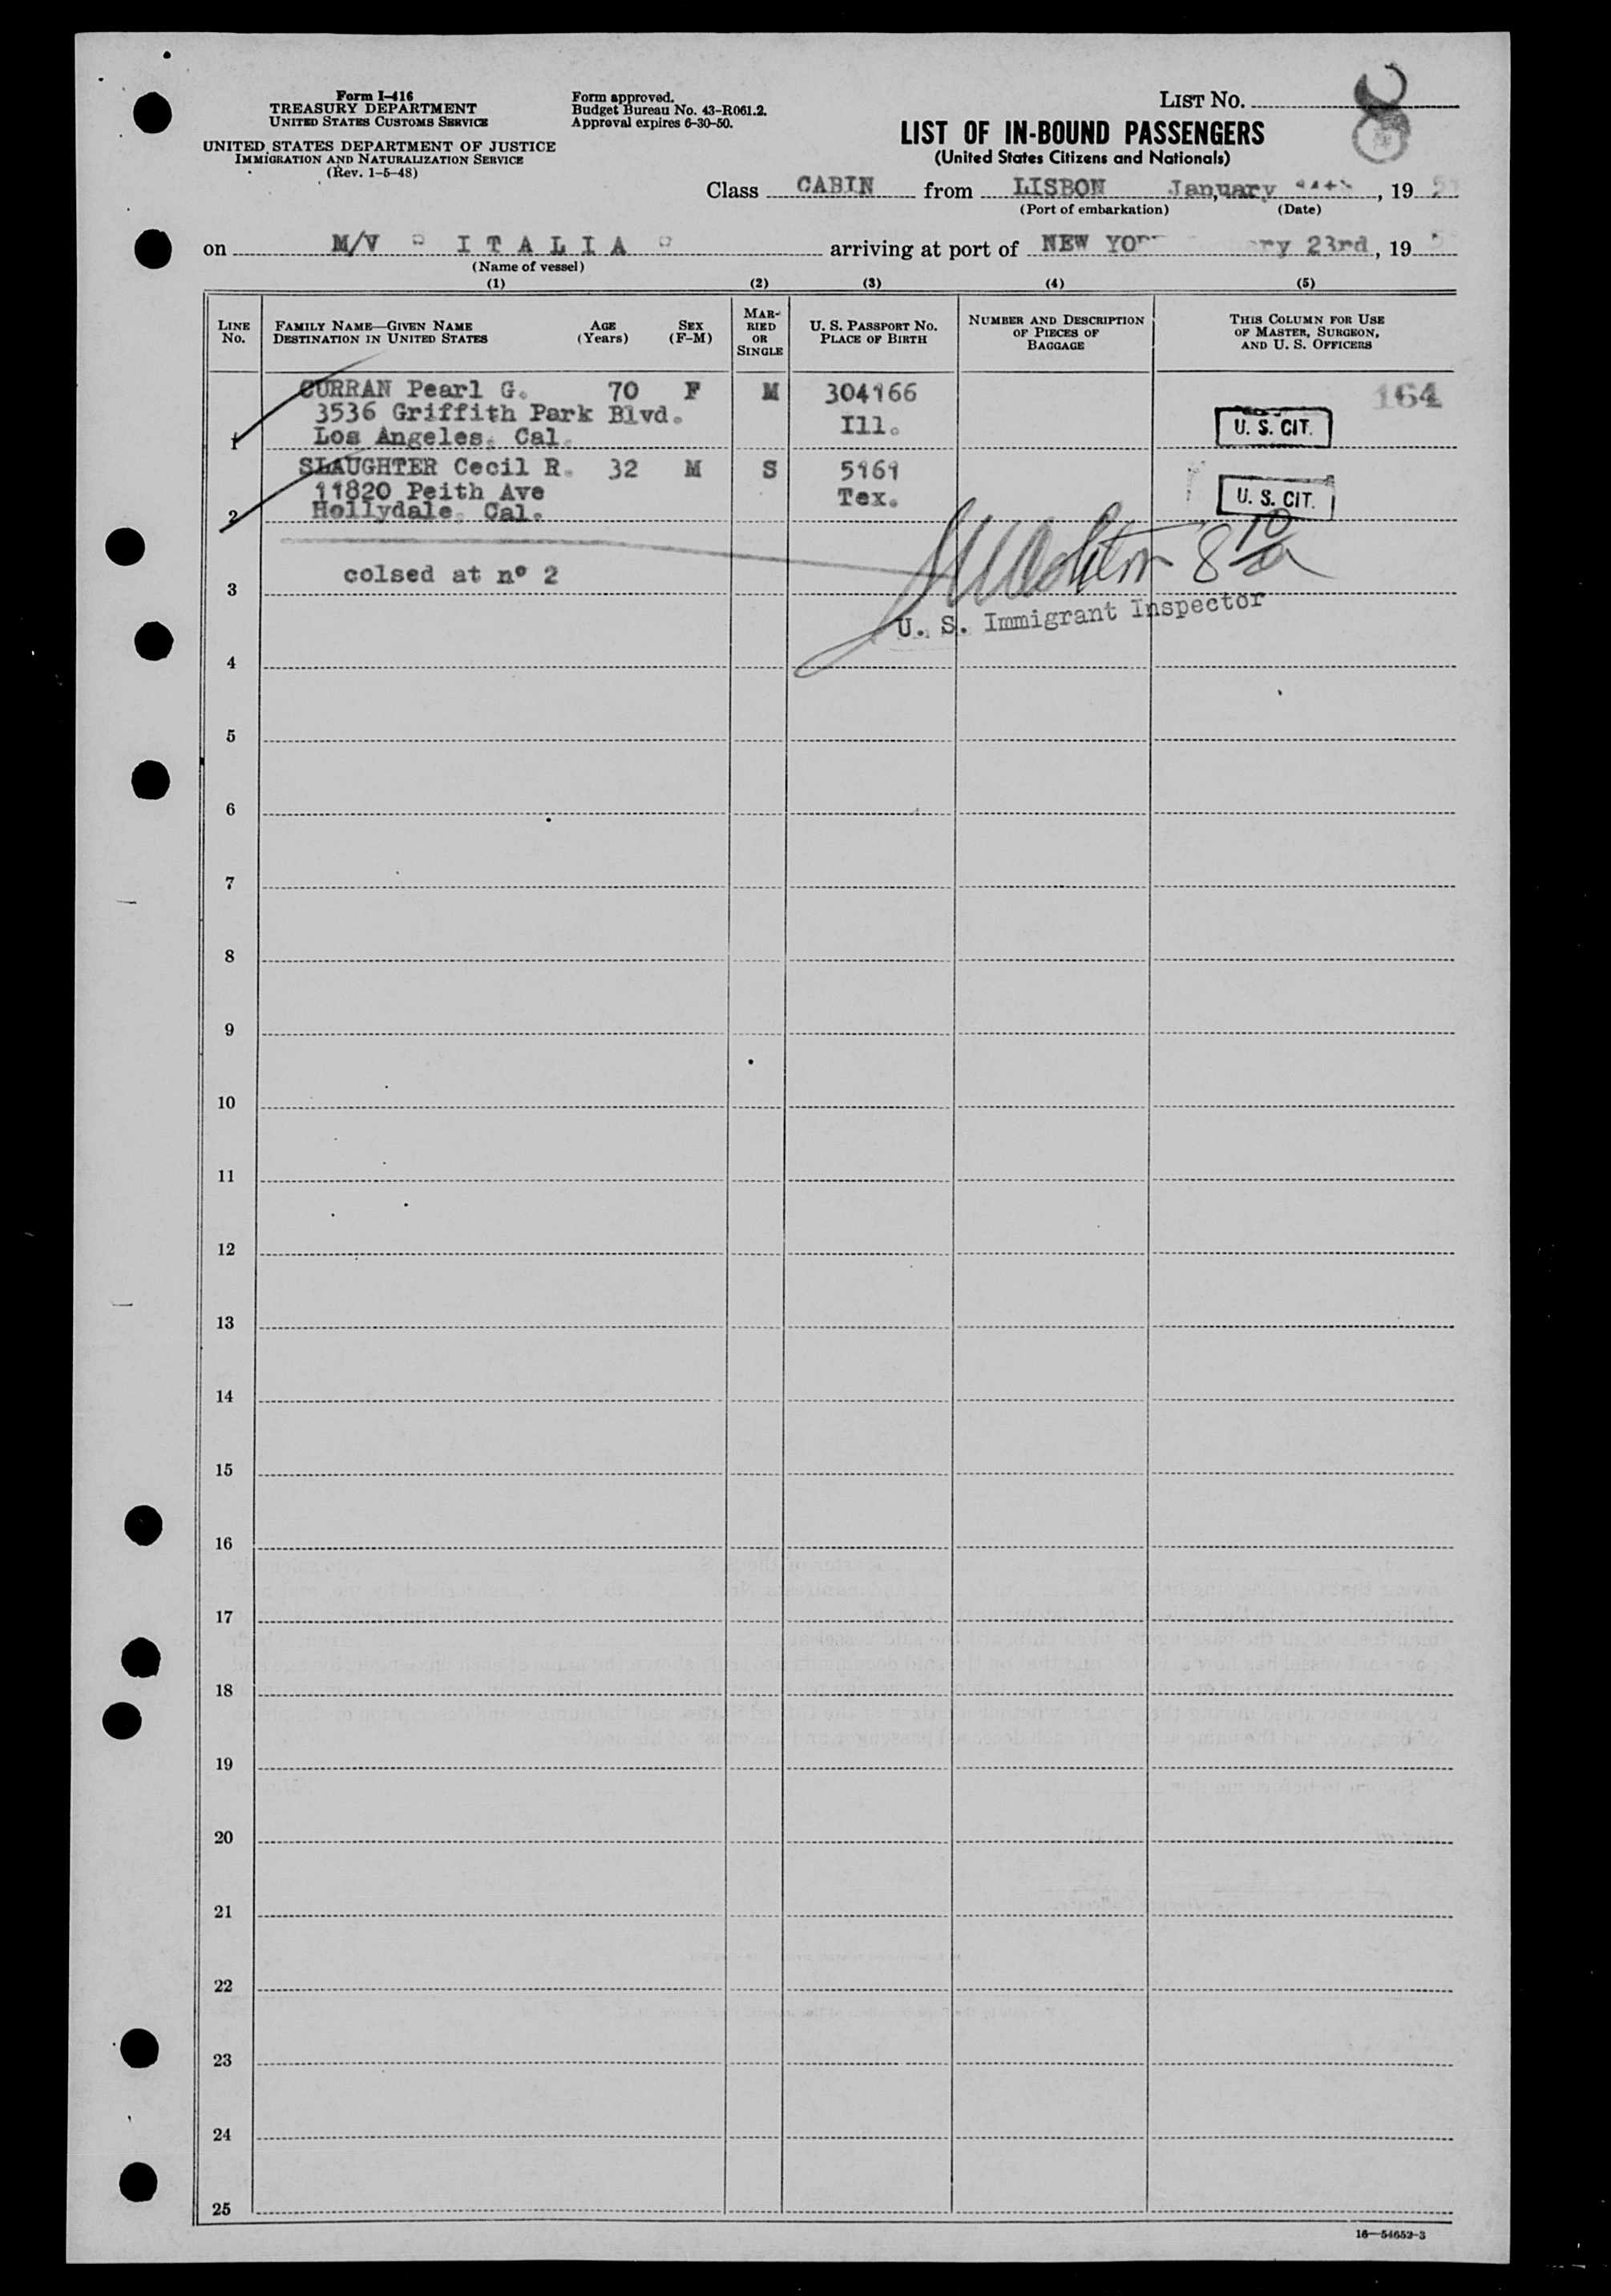 Form I-416
TREASURY DEPARTMENT
UNITED STATES CUSTOMS SERVICE
UNITED STATES DEPARTMENT OF JUSTICE
IMMIGRATION AND NATURALIZATION SERVICE
(Rev. 1-5-48)
Form approved.
Budget Bureau No. 43-R061.2.
Approval expires 6-30-50.
LIST NO.
LIST OF IN-BOUND PASSENGERS
(United States Citizens and Nationals)
Class CABIN from LISBON January , 19
(Port of embarkation) (Date)
on M/V " I T A L I A " arriving at port of NEW 23rd, 19
(Name of vessel)
(1) (2) (3) (4) (5)
LINE No. FAMILY NAME—GIVEN NAME DESTINATION IN UNITED STATES AGE (Years) SEX (F-M) MARRIED OR SINGLE U. S. PASSPORT NO. PLACE OF BIRTH NUMBER AND DESCRIPTION OF PIECES OF BAGGAGE THIS COLUMN FOR USE OF MASTER, SURGEON, AND U. S. OFFICERS
CURRAN Pearl G. 70 F M 304166 164
3536 Griffith Park Blvd. Ill. U. S. CIT.
1 Los Angeles, Cal.
SLAUGHTER Cecil R. 32 M S 5161
11820 Peith Ave Tex. U. S. CIT.
2 Hollydale, Cal.
colsed at nº 2
3
U. S. Immigrant Inspector
4
5
6
7
8
9
10
11
12
13
14
15
16
17
18
19
20
21
22
23
24
25
16—54652-3